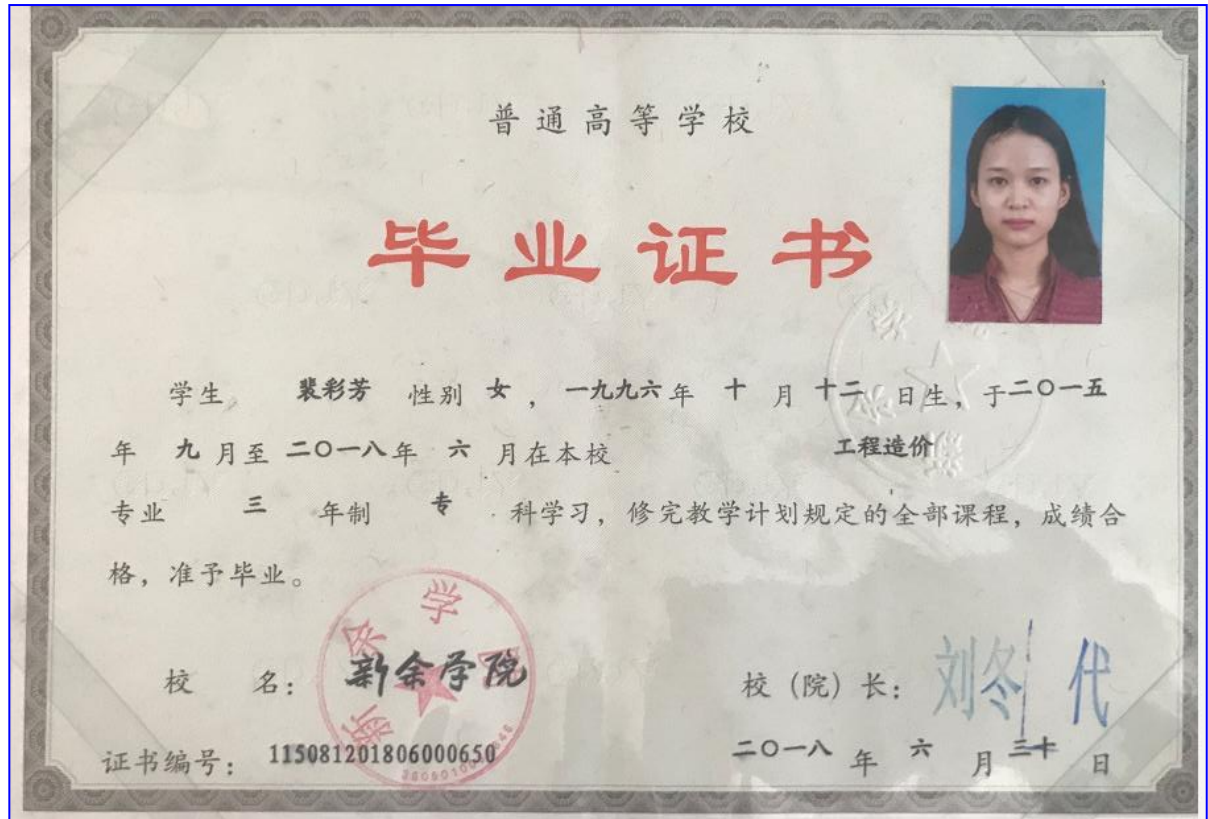 普通高等学校
毕业证书
学生 裴彩芳 性别 女 ，一九九六年 十 月 十二 日生，于二〇一五
年 九 月至 二〇一八年 六 月在本校 工程造价
专业 三 年制 专 科学习，修完教学计划规定的全部课程，成绩合
格，准予毕业。
新余学
校 名： 新余学院
校（院）长： 刘冬 代
证书编号： 115081201806000650
二〇一八 年 六 月 三十 日